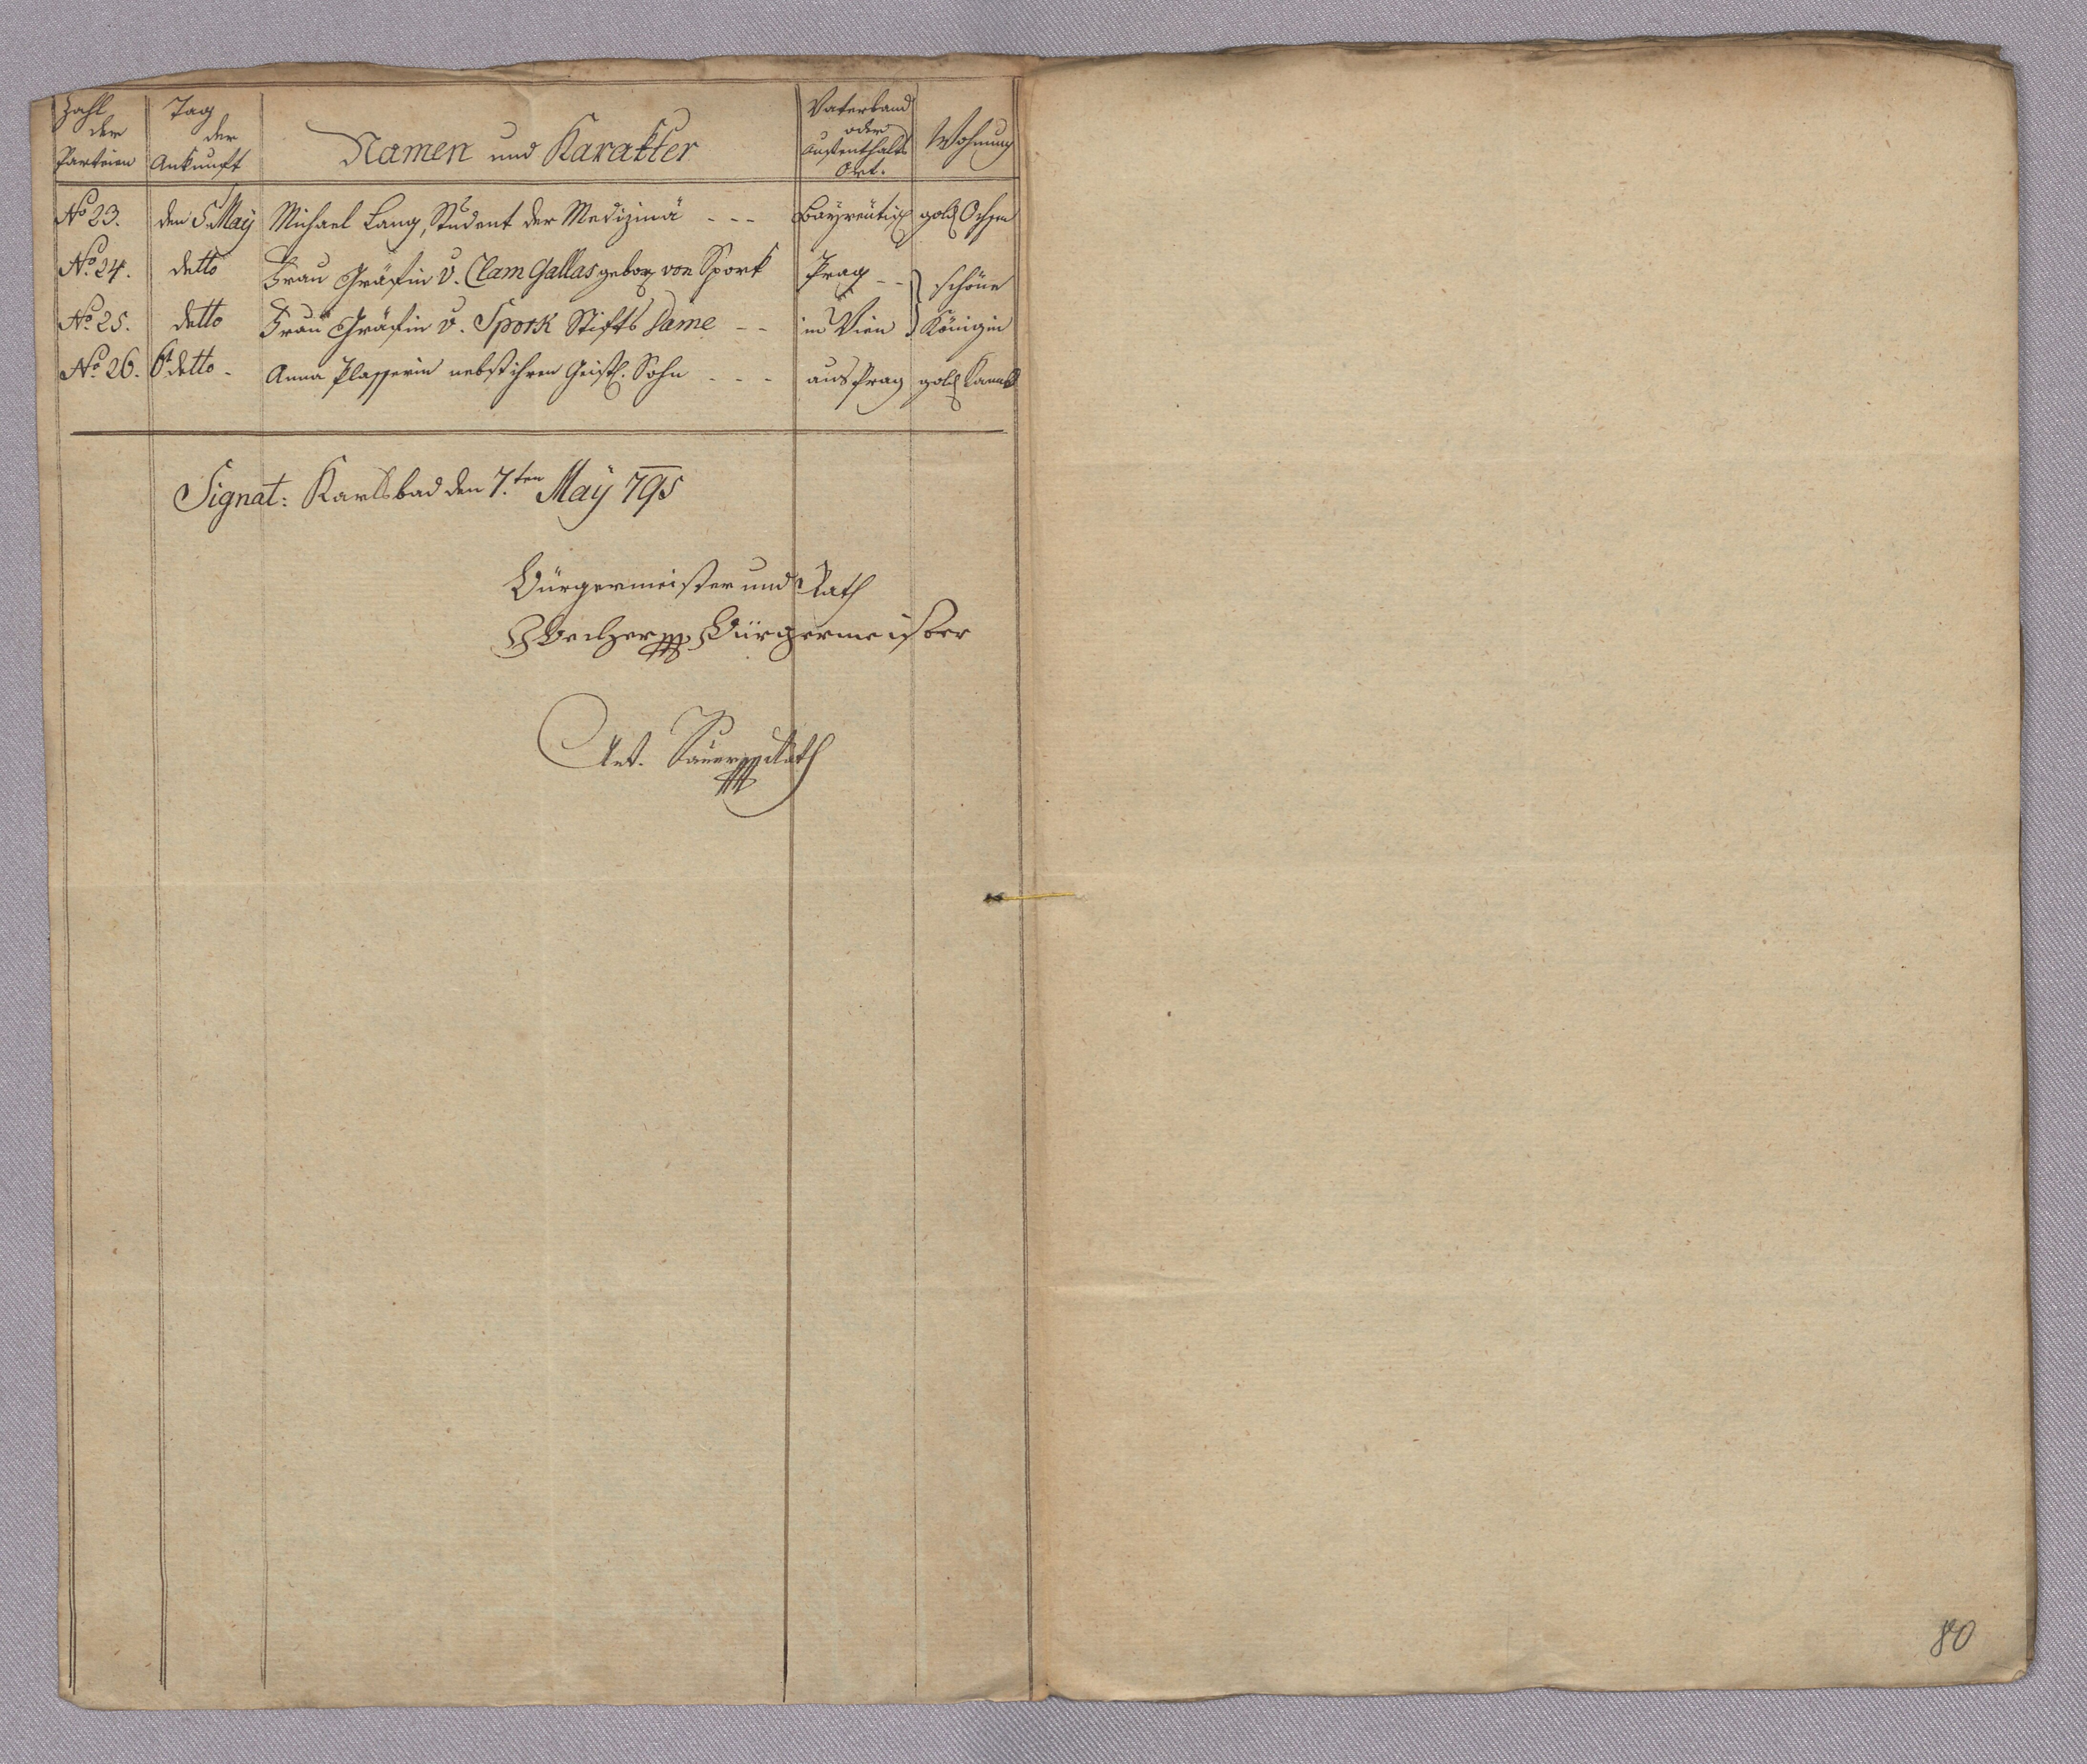 Zahl der Parteien | Tag der Ankunft | Namen und Karakter | Vaterland oder Aufenthalts Ort. | Wohnung
No 23. | den 5. Maÿ | Michael Lang, Student der Medizinä - - - | Bayreuth | gold Ochsen
No. 24. | detto | Frau Gräfin v. Clam Gallas gebor von Spork | Prag - - | schöne
No. 25. | detto | Frau Gräfin v. Spork Stifts Dame - - | in Wien | Königin
No. 26. | 6t detto - | Anna Plasserin nebst ihren Geistl. Sohn - - - | aus Prag | gold
Signat: Karlsbad den 7.ten Maÿ 795
Bürgermeister und Rath
Bürgermeister
Ant. Sauer Rath
80